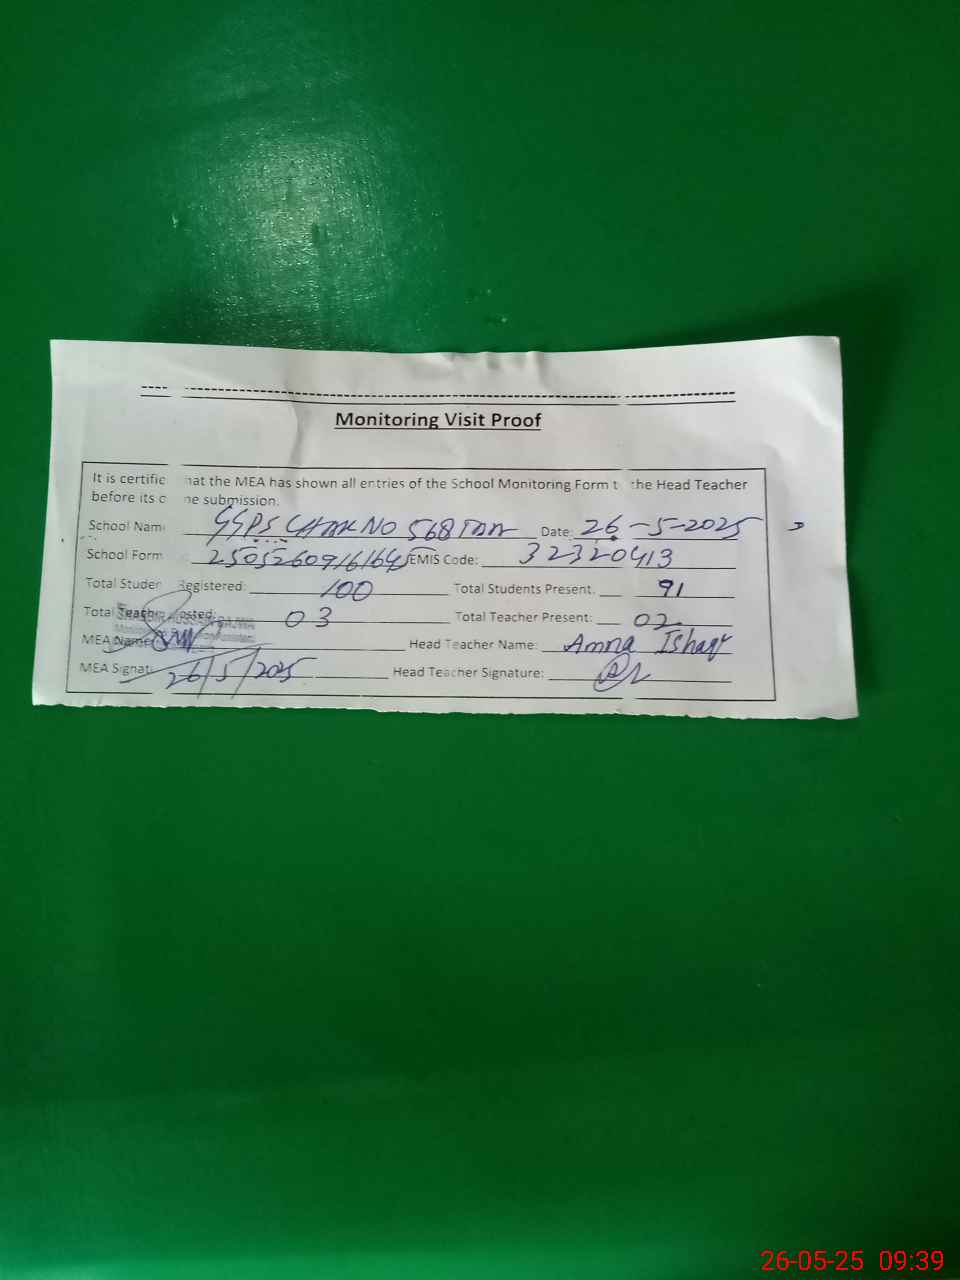 Monitoring Visit Proof
It is certifie hat the MEA has shown all entries of the School Monitoring Form t the Head Teacher
before its o ne submission.
School Nam GGPS CHAK NO 568 TDA Date: 26-5-2025
School Form EMIS Code: 32320413
Total Studen Registered: 100 Total Students Present. 91
Total Teach osted: 03 Total Teacher Present: 02
MEA Name: Head Teacher Name: Amna Ishaq
MEA Signat 26/5/2025 Head Teacher Signature:
26-05-25 09:39